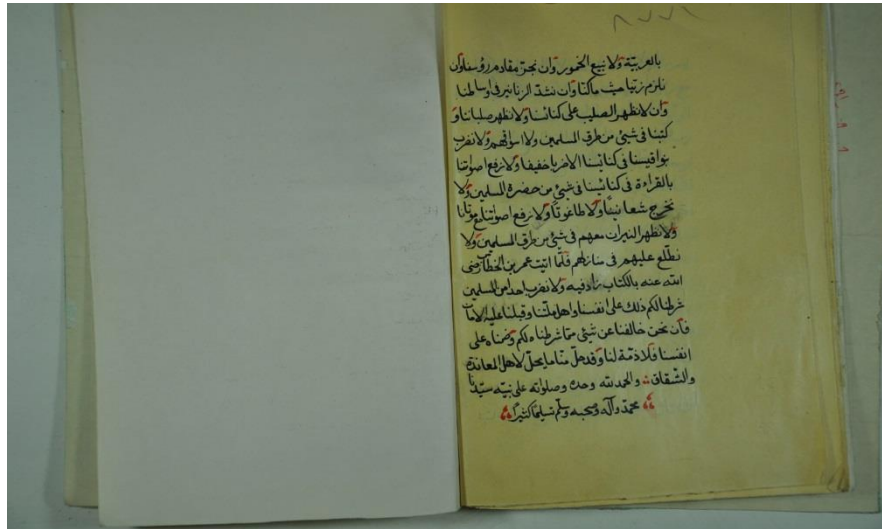 ٨٧٧٩
بالعربية ولا نبيع الخمور وان نجز مقادم رؤسنا وان
نلزم زينا حيث ماكنا وان نشد الزنانير فى اوساطنا
وان لانظهر الصليب على كنائسنا ولا نظهر صلباننا و
كتبنا فى شيئ من طرق المسلمين ولا اسواقهم ولا نضرب
نواقيسنا فى كنائسنا الا ضربا خفيفا ولا نرفع اصواتنا
بالقراءة فى كنائسنا فى شيئ من حضرة المسلمين ولا
نخرج شعانينا ولا طاغوتا ولا نرفع اصواتنا مع موتانا
ولا نظهر النيران معهم فى شيئ من طرق المسلمين ولا
نطلع عليهم فى منازلهم فلما اتيت عمر بن الخطاب رضى
الله عنه بالكتاب زاد فيه ولا نضرب احدا من المسلمين
شرطنا لكم ذلك على انفسنا واهل ملتنا وقبلنا عليه الامان
فان نحن خالفنا عن شيئ مما شرطناه لكم وضمناه على
انفسنا فلا ذمة لنا وقد حل منا ما يحل لاهل المعاندة
والشقاق والحمد لله وحده وصلواته على نبيه سيدنا
محمد وآله وصحبه وسلم تسليما كثيرا